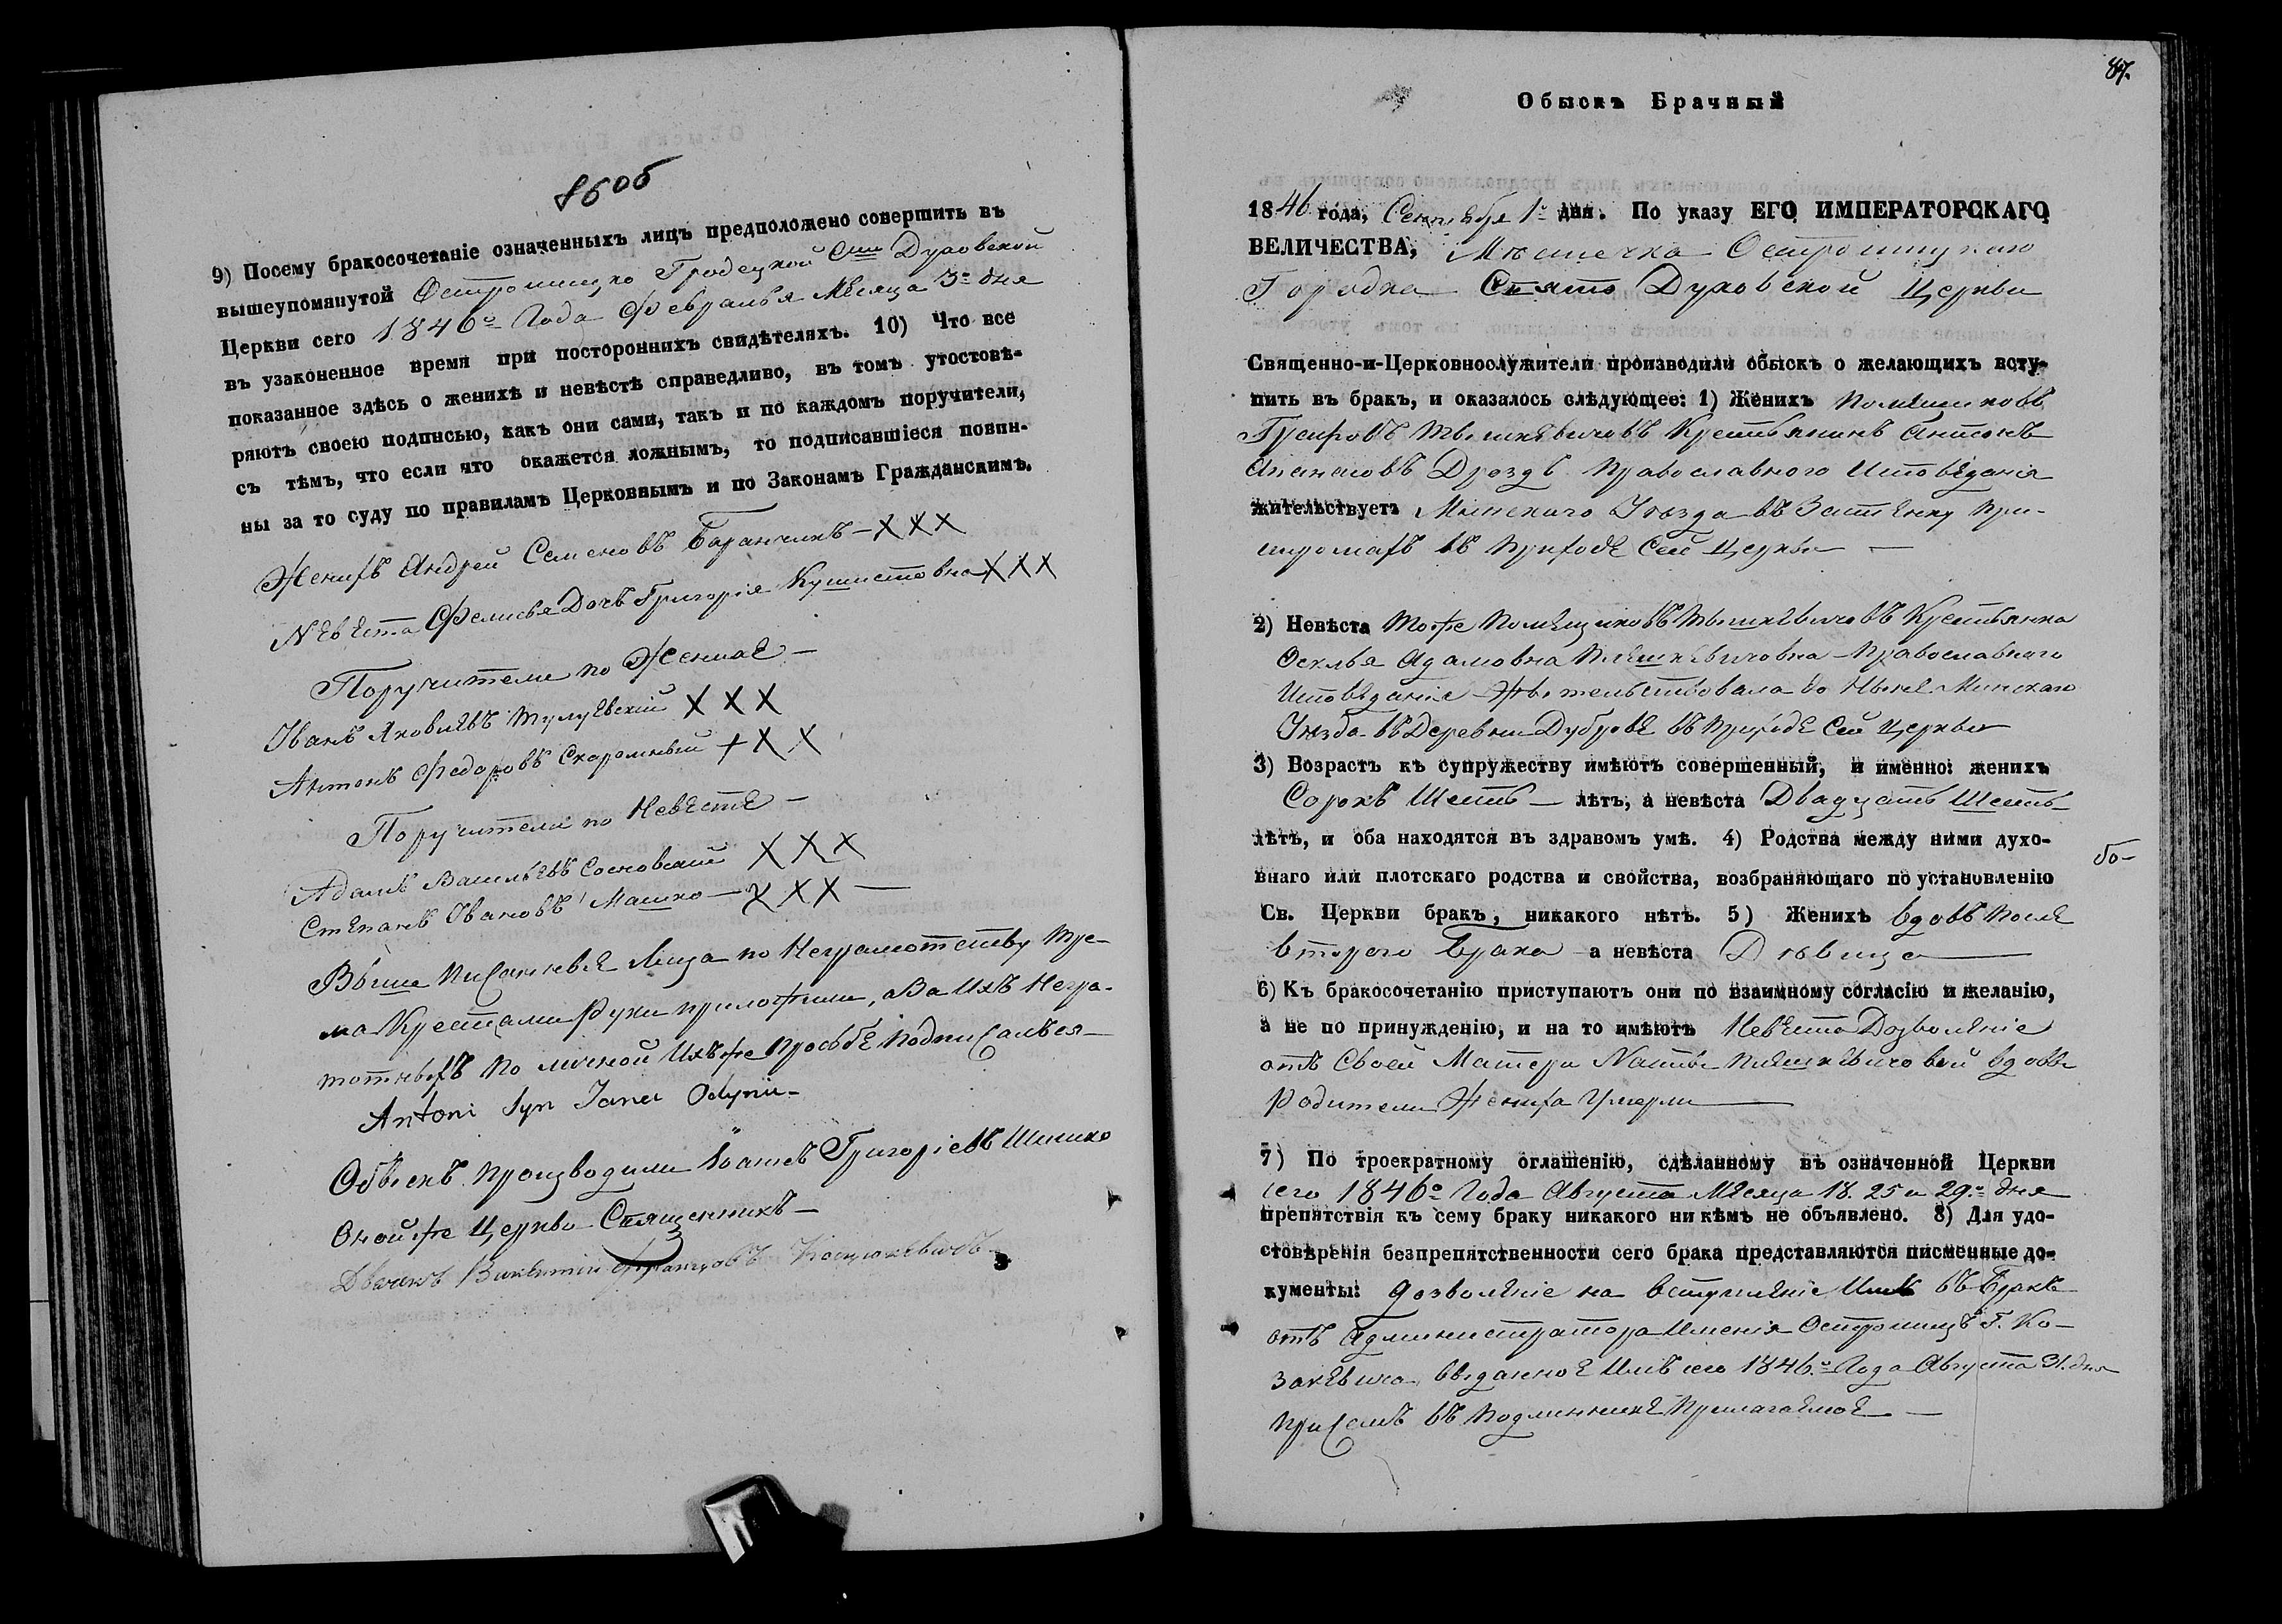 86 об
9) Посему бракосочетаніе означенныхъ лицъ предположено совершить въ
вышеупомянутой Остромицко Гродецкой Свто Духовской
Церкви сего 1846го Года Февраля Мѣсяца 3го дня
въ узаконенное время при постороннихъ свидѣтеляхъ. 10) Что все
показанное здѣсь о женихѣ и невѣстѣ справедливо, въ томъ утостовѣ-
ряютъ своею подписью, какъ они сами, такъ и по каждомъ поручители,
съ тѣмъ, что если что окажется ложнымъ, то подписавшіеся повин-
ны за то суду по правиламъ Церковнымъ и по Законамъ Гражданскимъ.
Женихъ Андрей Семеновъ Баранчикъ - XXX
Невѣста Фелисья Дочь Григорія XXX
Поручители по Женихѣ -
Иванъ Яковлевъ XXX
Антонъ Федоровъ Скоромный +XX
Поручители по Невѣстѣ -
Адамъ Васильевъ Сосновскій XXX
Степанъ Ивановъ Машко - XXX -
Выше писанные Лица по Неграмотству тре-
ма Крестами Руки приложили, а За Ихъ Негра-
мотныхъ по личной Ихъ же просьбѣ подписался
Antoni Syn Jana
Обыскъ производили Іоаннъ Григоріевъ Шишко
Оной же Церкви Священникъ -
Дьячекъ Викентій Францовъ
87.
Обыскъ Брачный
1846 года, Сентября 1го дня. По указу ЕГО ИМПЕРАТОРСКАГО
ВЕЛИЧЕСТВА, Мѣстечка
Городка Свято Духовской Церкви
Священно-и-Церковнослужители производили обыскъ о желающихъ всту-
пить въ бракъ, и оказалось слѣдующее: 1) Женихъ помѣщиковъ
Графовъ Тышкѣвичовъ Крестьянинъ Антонъ
Апанасовъ Дроздъ Православного Исповѣданія
жительствуетъ Минскаго Уѣзда въ Застѣнку
въ Приходѣ Сей Церкви -
2) Невѣста Тоже Помѣщиковъ Тышкѣвичовъ Крестьянка
Адамовна Православного
Исповѣданія Жительствовала до Нынѣ Минскаго
Уѣзда въ Деревни Дубровѣ въ Приходѣ Сей Церкви
3) Возрастъ къ супружеству имѣютъ совершенный, и именно: женихъ
Сорокъ Шесть - лѣтъ, а невѣста Двадцать Шесть
лѣтъ, и оба находятся въ здравомъ умѣ. 4) Родства между ними духо-
внаго или плотскаго родства и свойства, возбраняющаго по установленію
Св. Церкви бракъ, никакого нѣтъ. 5) Женихъ вдовъ послѣ
второго брака - а невѣста Дѣвица
6) Къ бракосочетанію приступаютъ они по взаимному согласію и желанію,
а не по принужденію, и на то имѣютъ Невѣста Дозволѣніе
отъ Своей Матери вдовы
Родители Жениха Умерли
7) По троекратному оглашенію, сдѣланному въ означенной Церкви
сего 1846го Года Августа Мѣсяца 18. 25 и 29го дня
препятствія къ сему браку никакого ни кѣмъ не объявлено. 8) Для удо-
стовѣренія безпрепятственности сего брака представляются писменные до-
кументы: дозволѣніе на вступлѣніе Имъ въ Бракъ
отъ Администратора Именія Г. Ко-
закѣвича выданноѣ Имъ сего 1846го Года Августа 31. дня
при Семъ въ Подлинникѣ Прилагаемоѣ -